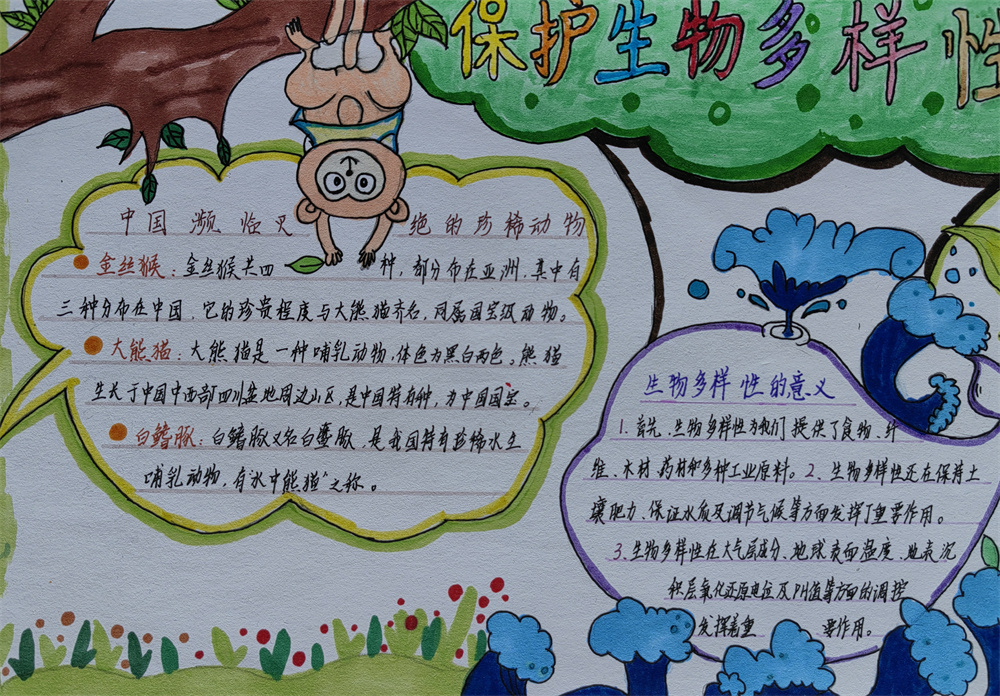 保护生物多样性
中国濒临灭绝的珍稀动物
金丝猴：金丝猴共四种，部分布在亚洲，其中有
三种分布在中国，它的珍贵程度与大熊猫齐名，同属国宝级动物。
大熊猫：大熊猫是一种哺乳动物，体色为黑白两色。熊猫
生长于中国中西部四川盆地周边山区，是中国特有种，为中国国宝。
白鳍豚：白鳍豚又名白鱀豚，是我国特有的淡水生
哺乳动物，有"水中熊猫"之称。
生物多样性的意义
1.首先、生物多样性为我们提供了食物、纤
维、木材、药材和多种工业原料。2、生物多样性还在保持土
壤肥力、保证水质及调节气候等方面发挥了重要作用。
3.生物多样性在大气层成分、地球表面温度、地表沉
积层氧化还原电位及PH值等方面的调控
发挥着重要作用。